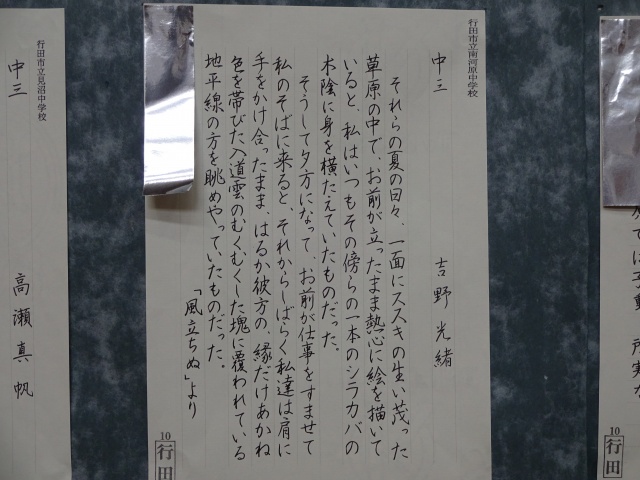 行田市立南河原中学校
中三 吉野光緒
それらの夏の日々、一面にススキの生い茂った
草原の中で、お前が立ったまま熱心に絵を描いて
いると、私はいつもその傍らの一本のシラカバの
木陰に身を横たえていたものだった。
そうして夕方になって、お前が仕事をすませて
私のそばに来ると、それからしばらく私達は肩に
手をかけ合ったまま、はるか彼方の、縁だけあかね
色を帯びた入道雲のむくむくした塊に覆われている
地平線の方を眺めやっていたものだった。
「風立ちぬ」より
10
行田
行田市立見沼中学校
中三 高瀬真帆
10
行